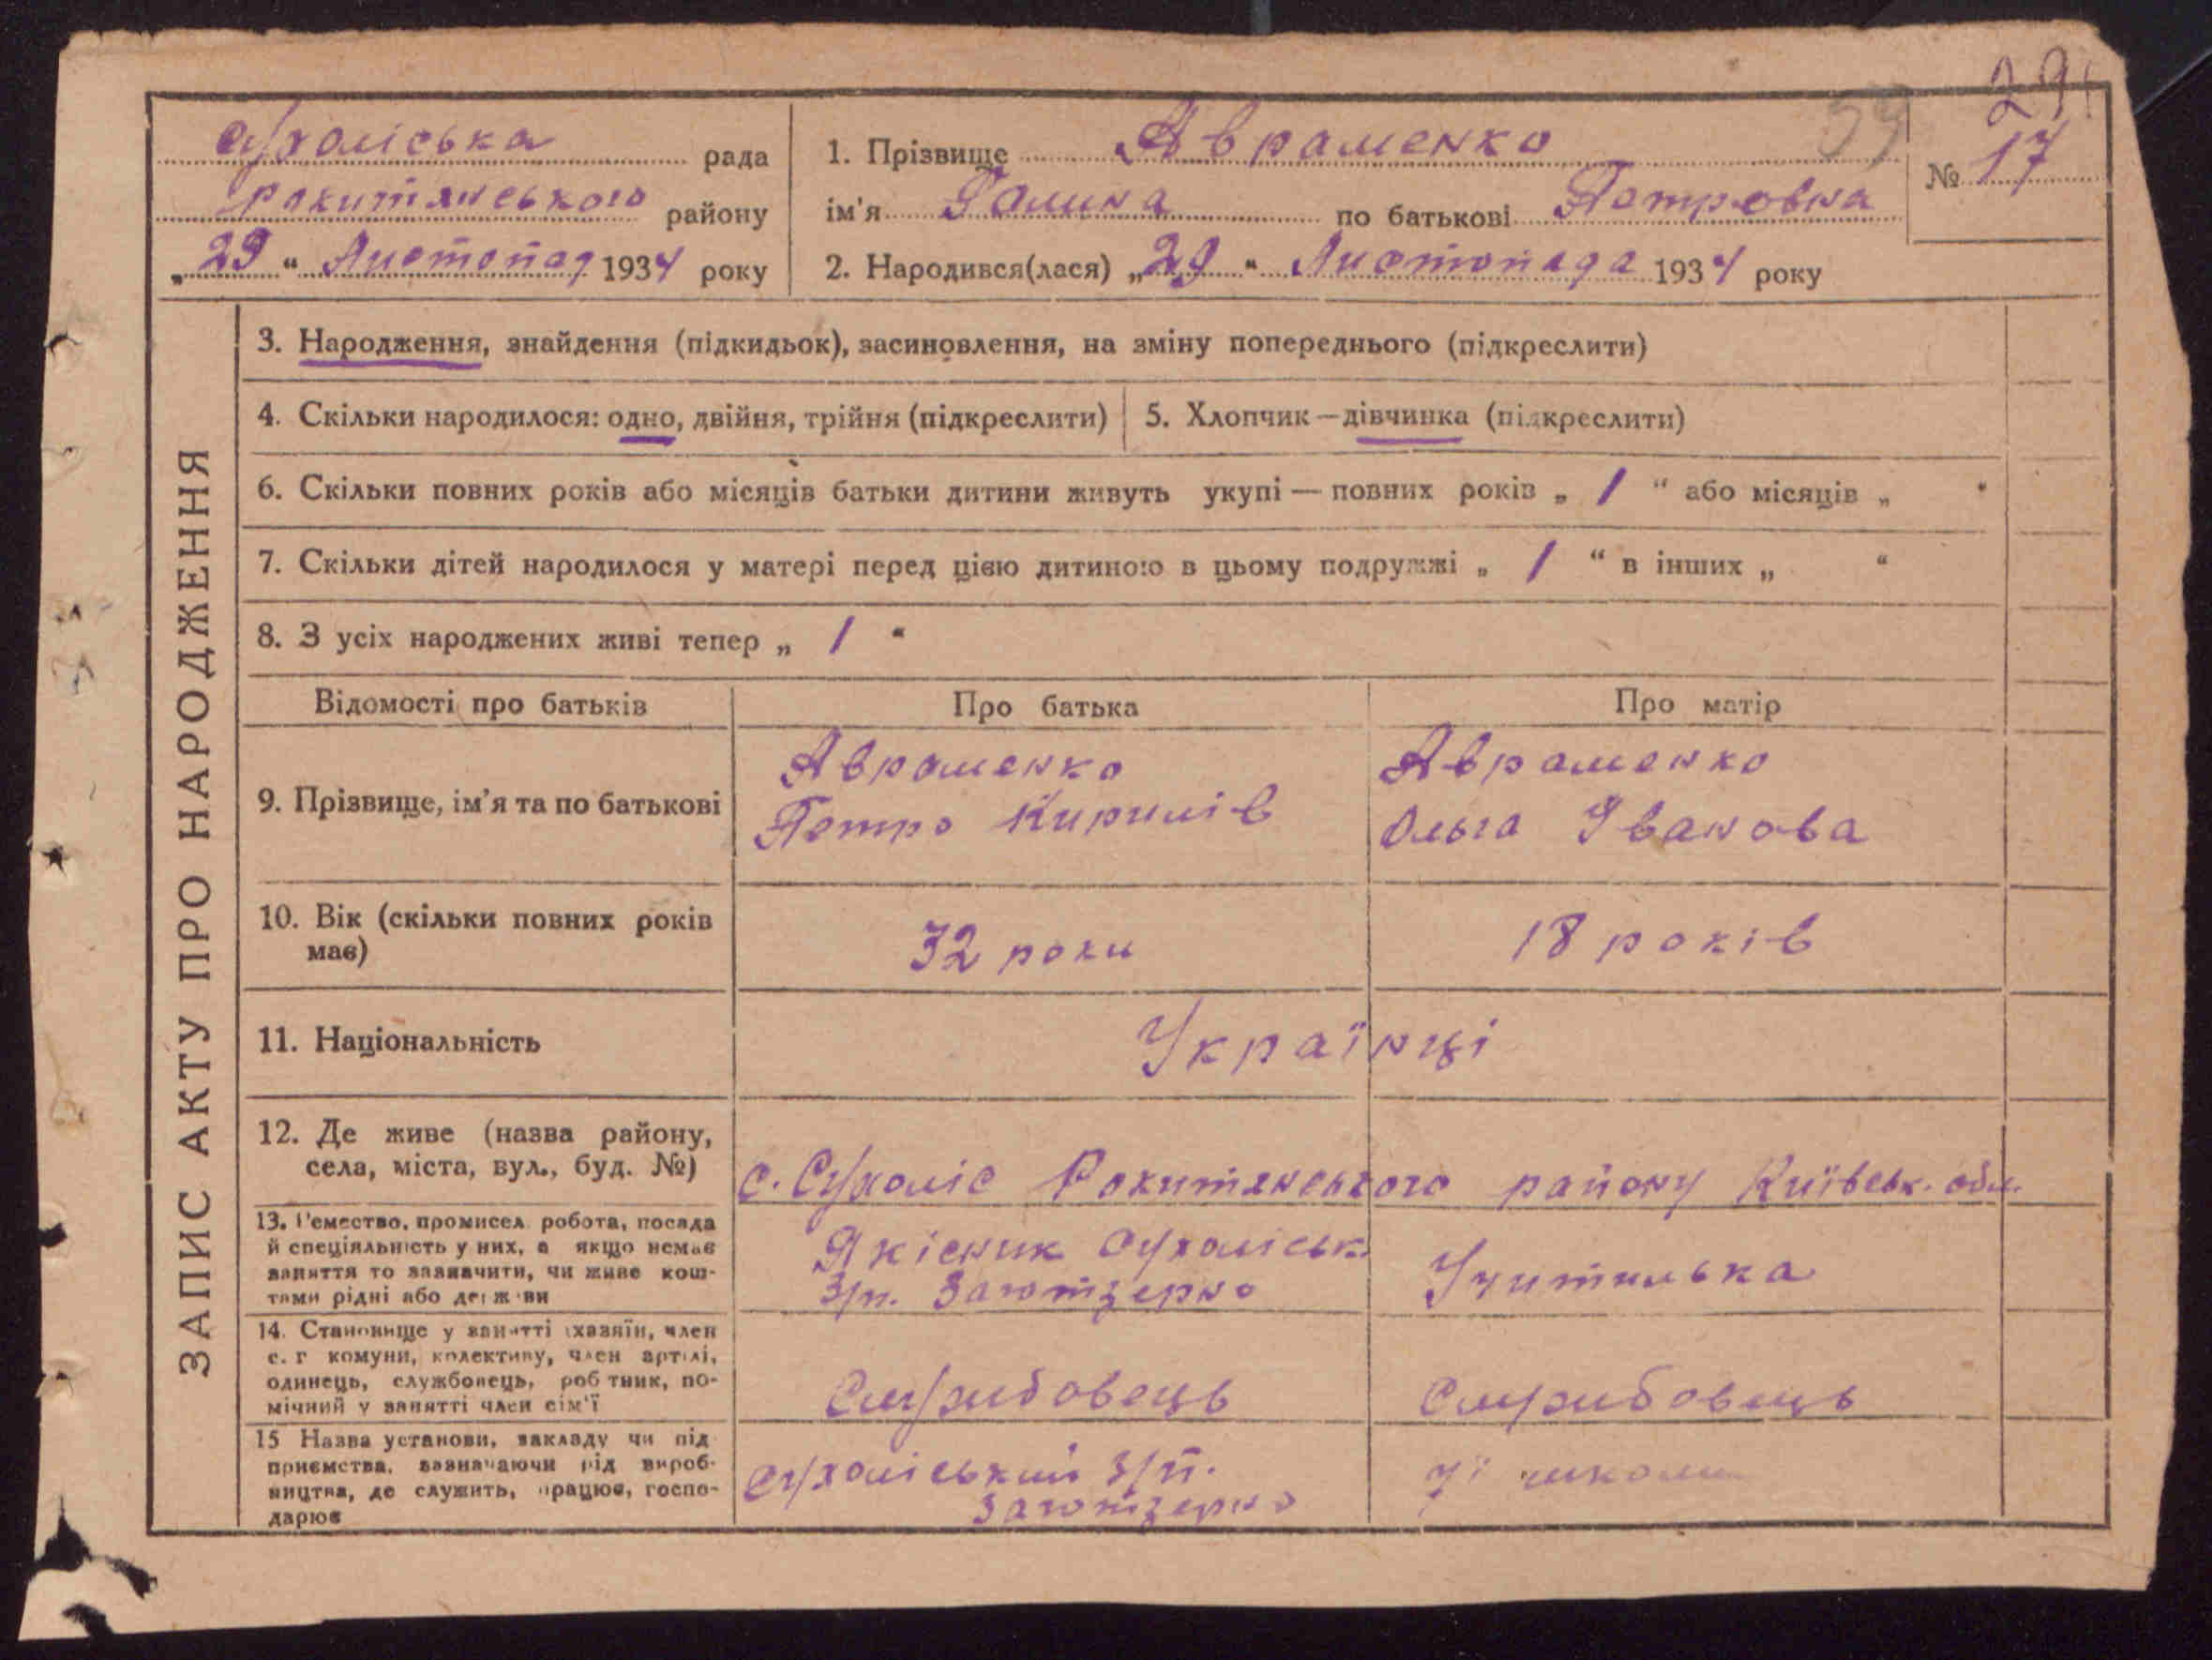 29
59
Сухоліська рада
Рокитянського району
„29“ Листопад 1934 року
1. Прізвище Авраменко
ім'я Галина по батькові Петровна
№ 17
2. Народився(лася) „29“ Листопада 1934 року
ЗАПИС АКТУ ПРО НАРОДЖЕННЯ
3. Народження, знайдення (підкидьок), засиновлення, на зміну попереднього (підкреслити)
4. Скільки народилося: одно, двійня, трійня (підкреслити)
5. Хлопчик — дівчинка (підкреслити)
6. Скільки повних років або місяців батьки дитини живуть укупі — повних років „ 1 “ або місяців „ “
7. Скільки дітей народилося у матері перед цією дитиною в цьому подружжі „ 1 “ в інших „ “
8. З усіх народжених живі тепер „ 1 “
Відомості про батьків
Про батька
Про матір
9. Прізвище, ім'я та по батькові
Авраменко
Петро Кирилів
Авраменко
Ольга Іванова
10. Вік (скільки повних років
має)
32 роки
18 років
11. Національність
Українці
12. Де живе (назва району,
села, міста, вул., буд. №)
с. Сухоліс Рокитянського району Київськ. обл.
13. Ремество, промисел, робота, посада
й спеціяльність у них, а якщо немає
заняття то зазначити, чи живе кош-
тами рідні або держави
Якісник Сухоліськ
З/п. Заготзерно
Учителька
14. Становище у занятті (хазяїн, член
с. г комуни, колективу, член артілі,
одинець, службовець, робітник, по-
мічний у занятті член сім'ї
Службовець
Службовець
15 Назва установи, закладу чи під
приємства, зазначаючи рід вироб-
ництва, де служить, працює, госпо-
дарює
Сухоліський З/п.
Заготзерно
школи